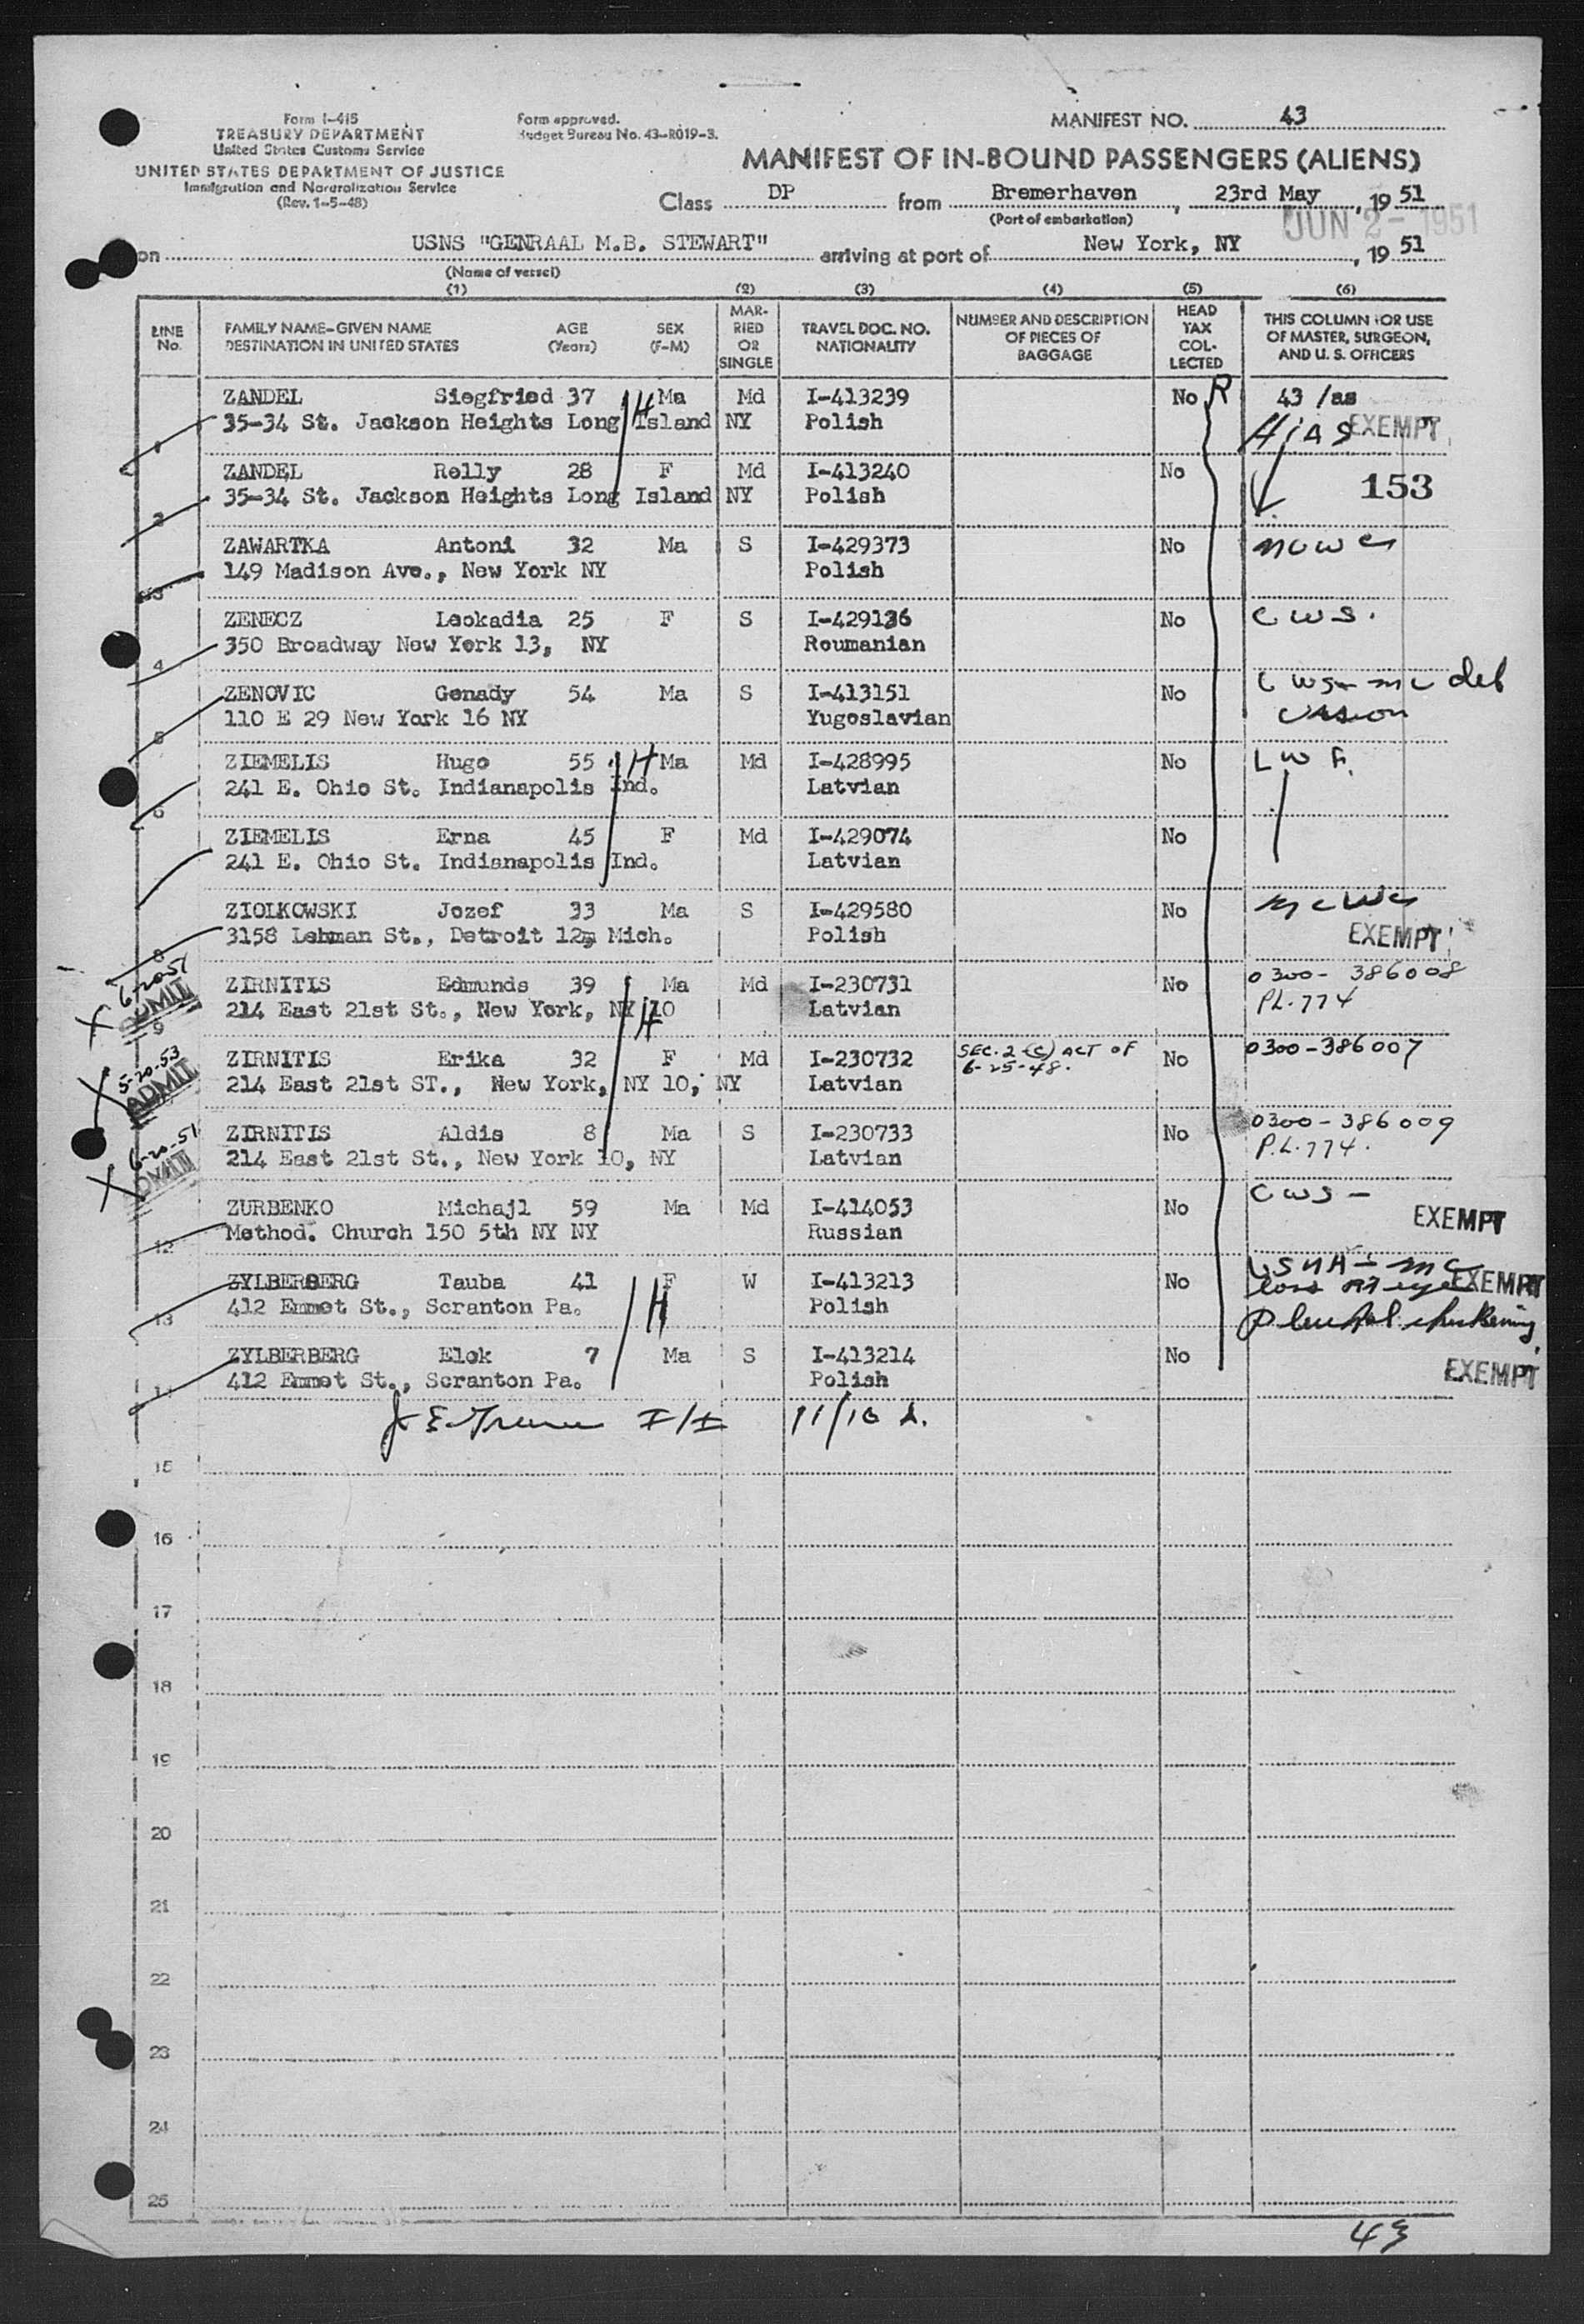 Form I-415
TREASURY DEPARTMENT
United States Customs Service
UNITED STATES DEPARTMENT OF JUSTICE
Immigration and Naturalization Service
(Rev. 1-5-48)
Form approved.
Budget Bureau No. 43-R019-3.
MANIFEST NO. 43
MANIFEST OF IN-BOUND PASSENGERS (ALIENS)
Class DP from Bremerhaven, 23rd May, 19 51
(Port of embarkation)
JUN 2 - 1951
on USNS "GENRAAL M.B. STEWART" arriving at port of New York, NY, 19 51
(Name of vessel)
(1) (2) (3) (4) (5) (6)
LINE No.
FAMILY NAME-GIVEN NAME AGE SEX
DESTINATION IN UNITED STATES (Years) (F-M)
MARRIED OR SINGLE
TRAVEL DOC. NO. NATIONALITY
NUMBER AND DESCRIPTION OF PIECES OF BAGGAGE
HEAD TAX COLLECTED
THIS COLUMN FOR USE OF MASTER, SURGEON, AND U. S. OFFICERS
ZANDEL Siegfried 37 H Ma Md I-413239 No R 43 /as
1 35-34 St. Jackson Heights Long Island NY Polish Hias EXEMPT
ZANDEL Relly 28 F Md I-413240 No 153
2 35-34 St. Jackson Heights Long Island NY Polish
ZAWARTKA Antoni 32 Ma S I-429373 No
3 149 Madison Ave., New York NY Polish
ZENECZ Leokadia 25 F S I-429136 No CWS.
4 350 Broadway New York 13, NY Roumanian
ZENOVIC Genady 54 Ma S I-413151 No CWS - mc def
5 110 E 29 New York 16 NY Yugoslavian vision
ZIEMELIS Hugo 55 H Ma Md I-428995 No LWF.
6 241 E. Ohio St. Indianapolis Ind. Latvian
ZIEMELIS Erna 45 F Md I-429074 No
241 E. Ohio St. Indianapolis Ind. Latvian
ZIOLKOWSKI Jozef 33 Ma S I-429580 No
8 3158 Lehman St., Detroit 12, Mich. Polish EXEMPT
6-20-51 ZIRNITIS Edmunds 39 Ma Md I-230731 No 0300-386008
ADMIT 9 214 East 21st St., New York, NY 10 H Latvian PL.774
5-20-53 ZIRNITIS Erika 32 F Md I-230732 SEC. 2-(c) ACT OF 6-25-48. No 0300-386007
ADMIT 214 East 21st ST., New York, NY 10, NY Latvian
6-20-51 ZIRNITIS Aldis 8 Ma S I-230733 No 0300-386009
ADMIT 214 East 21st St., New York 10, NY Latvian P.L.774.
ZURBENKO Michajl 59 Ma Md I-414053 No CWS -
12 Method. Church 150 5th NY NY Russian EXEMPT
ZYLBERBERG Tauba 41 F W I-413213 No USNA - mc EXEMPT
13 412 Emmet St., Scranton Pa. H Polish
ZYLBERBERG Elok 7 Ma S I-413214 No
14 412 Emmet St., Scranton Pa. Polish EXEMPT
I/I 11/10
15
16
17
18
19
20
21
22
23
24
25
43